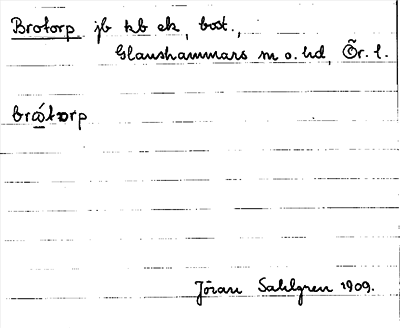 Brotorp jb kb ek, bost.,
Glanshammars sn o. hd, Ör. l.
brǿtɒrp
Jöran Sahlgren 1909.